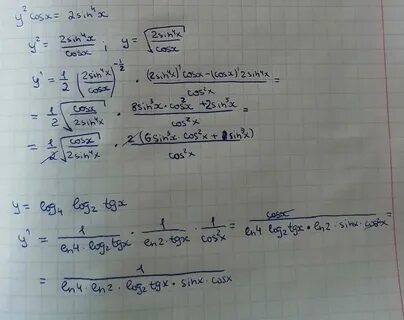 y² cosx = 2sin⁴x
y² = 2sin⁴x / cosx ; y = √(2sin⁴x / cosx)
y' = 1/2 (2sin⁴x / cosx)^(-1/2) · ((2sin⁴x)' cosx - (cosx)' 2sin⁴x) / cos²x =
= 1/2 √(cosx / 2sin⁴x) · (8sin³x · cos²x + 2sin⁵x) / cos²x =
= 1/2 √(cosx / 2sin⁴x) · 2 (6sin³x · cos²x + sin⁵x) / cos²x
y = log₄ log₂ tgx
y' = 1 / (ln4 · log₂ tgx) · 1 / (ln2 · tgx) · 1 / cos²x = cosx / (ln4 · log₂ tgx · ln2 · sinx · cos²x) =
= 1 / (ln4 · ln2 · log₂ tgx · sinx · cosx)